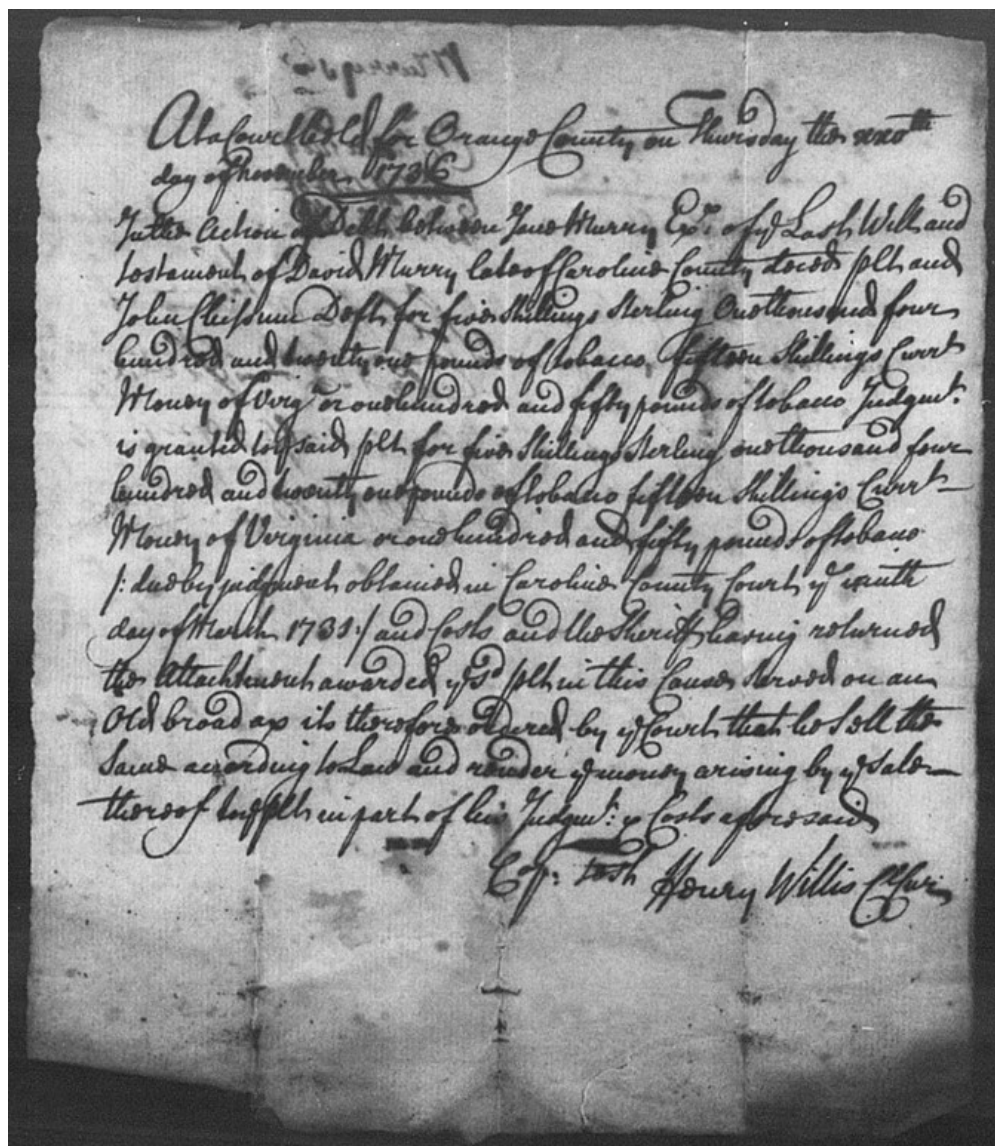 Murrys
At a Court held for Orange County on Thursday the
day of November 1736
In the Action of Debt between Jane Murry Exrx. of ye Last Will and
testament of David Murry late of Caroline County deced plt and
John Chissum Deft for five Shillings Sterling One thousand four
hundred and twenty one pounds of tobacco, fifteen Shillings Currt
Money of Virga or one hundred and fifty pounds of tobaco Judgmt.
is granted to ye said plt for five Shillings Sterling one thousand four
hundred and twenty one pounds of tobacco fifteen Shillings Currt
Money of Virginia or one hundred and fifty pounds of tobaco
/: due by judgment obtained in Caroline County Court ye ninth
day of March 1731 :/ and Costs and the Sheriff having returned
the Attachment awarded ye sd plt in this Cause Served on an
Old broad ax its therefore ordered by ye Court that he Sell the
Same according to Law and render ye money arising by ye sale
thereof to ye plt in part of his Judgmt: & Costs aforesaid
Cop: Test Henry Willis Cl Cur